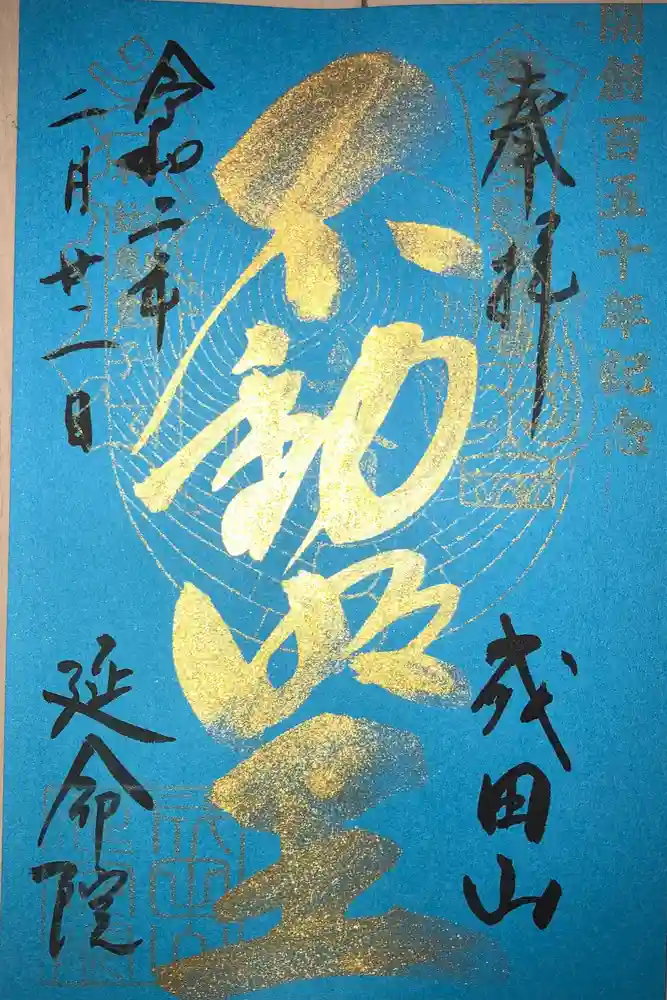 開創百五十年記念
奉拝
成田山
不動明王
令和二年
二月廿二日
延命院